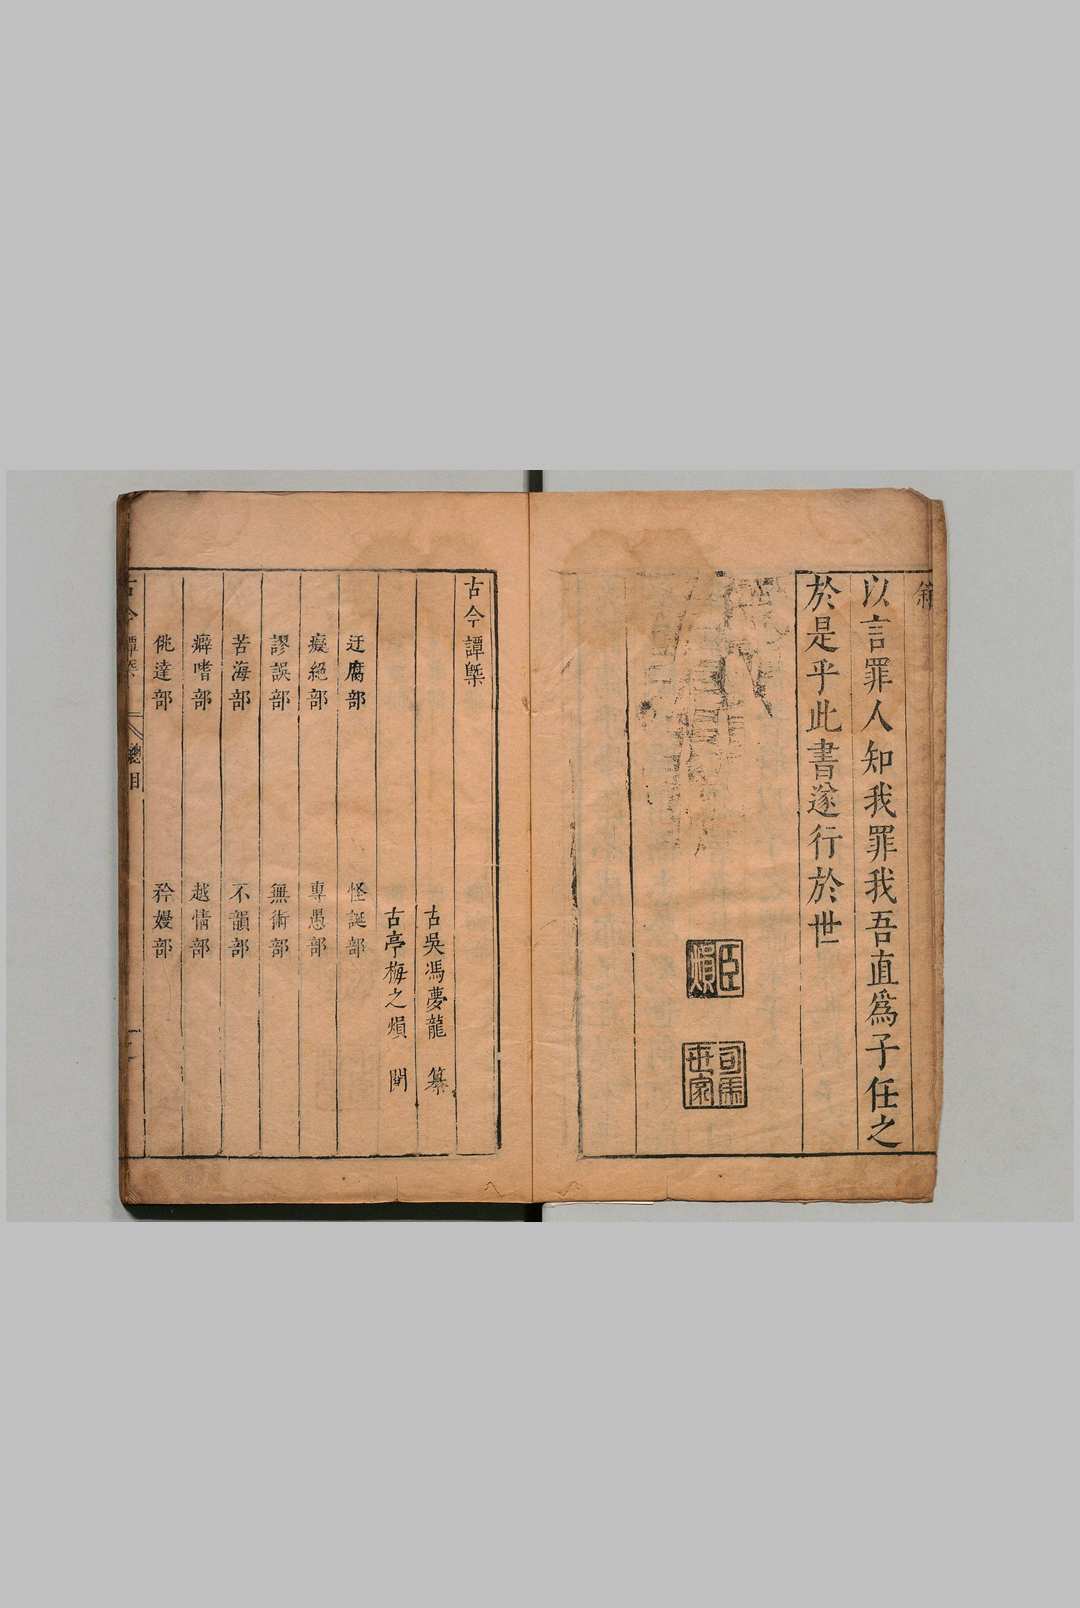 以言罪人知我罪我吾直爲子任之
於是乎此書遂行於世
臣熉
司馬世家
古今譚槩
古吳馮夢龍 纂
古亭梅之熉 閱
迂腐部 怪誕部
癡絕部 專愚部
謬誤部 無術部
苦海部 不韻部
癖嗜部 越情部
佻達部 矜嫚部
古今譚槩 總目 一